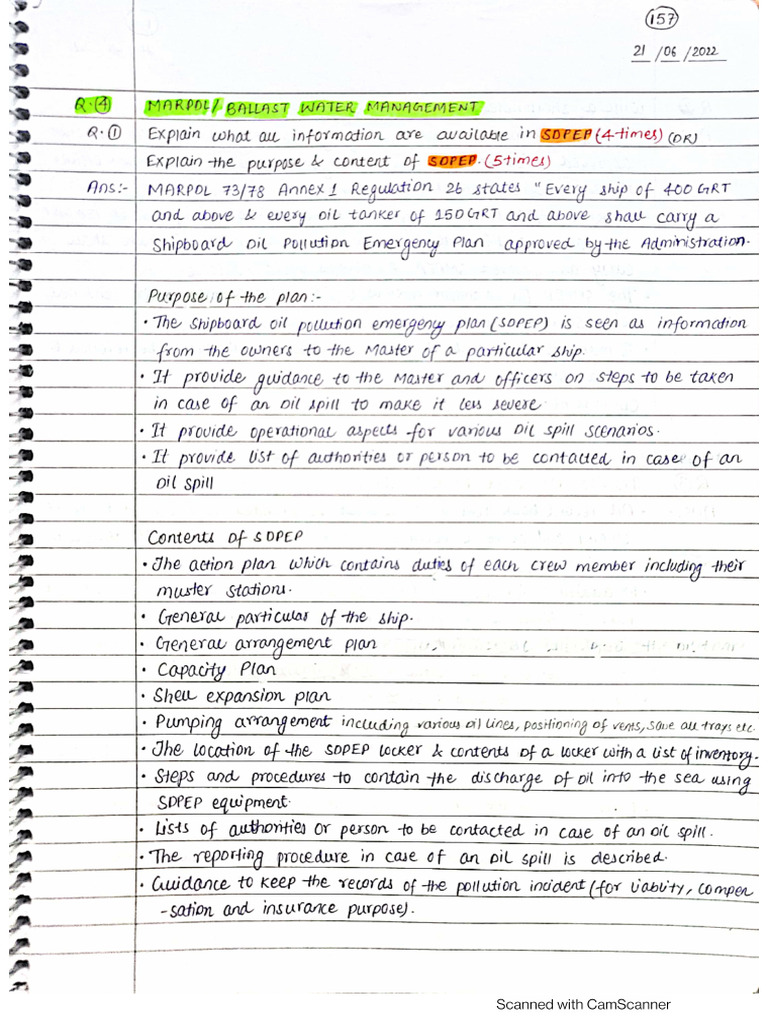 157
21/06/2022
Q.④ MARPOL/BALLAST WATER MANAGEMENT
Q.① Explain what all information are available in SOPEP (4-times) (OR)
Explain the purpose & content of SOPEP. (5 times)
Ans:- MARPOL 73/78 Annex 1 Regulation 26 states "Every ship of 400 GRT
and above & every oil tanker of 150 GRT and above shall carry a
Shipboard Oil Pollution Emergency Plan approved by the Administration.
Purpose of the plan:-
• The shipboard oil pollution emergency plan (SOPEP) is seen as information
from the owners to the Master of a particular ship.
• It provide guidance to the Master and officers on steps to be taken
in case of an oil spill to make it less severe
• It provide operational aspects for various oil spill scenarios.
• It provide list of authorities or person to be contacted in case of an
oil spill
Contents of SOPEP
• The action plan which contains duties of each crew member including their
muster stations.
• General particular of the ship.
• General arrangement plan
• Capacity Plan
• Shell expansion plan
• Pumping arrangement including various oil lines, positioning of vents, save all trays etc.
• The location of the SOPEP locker & contents of a locker with a list of inventory.
• Steps and procedures to contain the discharge of oil into the sea using
SOPEP equipment.
• Lists of authorities or person to be contacted in case of an oil spill.
• The reporting procedure in case of an oil spill is described.
• Guidance to keep the records of the pollution incident (for liablity, compen
-sation and insurance purpose).
Scanned with CamScanner